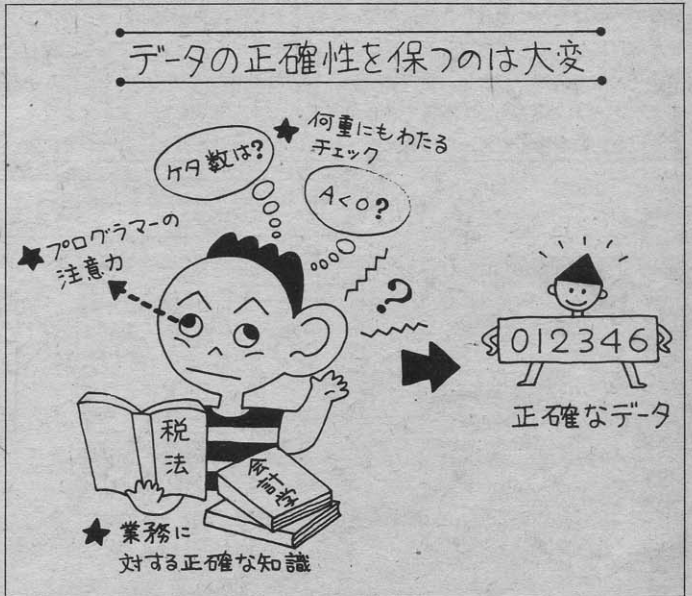 データの正確性を保つのは大変
★何重にもわたる
チェック
ケタ数は?
A<0?
★プログラマーの
注意力
?
012346
正確なデータ
税
法
会
計
学
★業務に
対する正確な知識